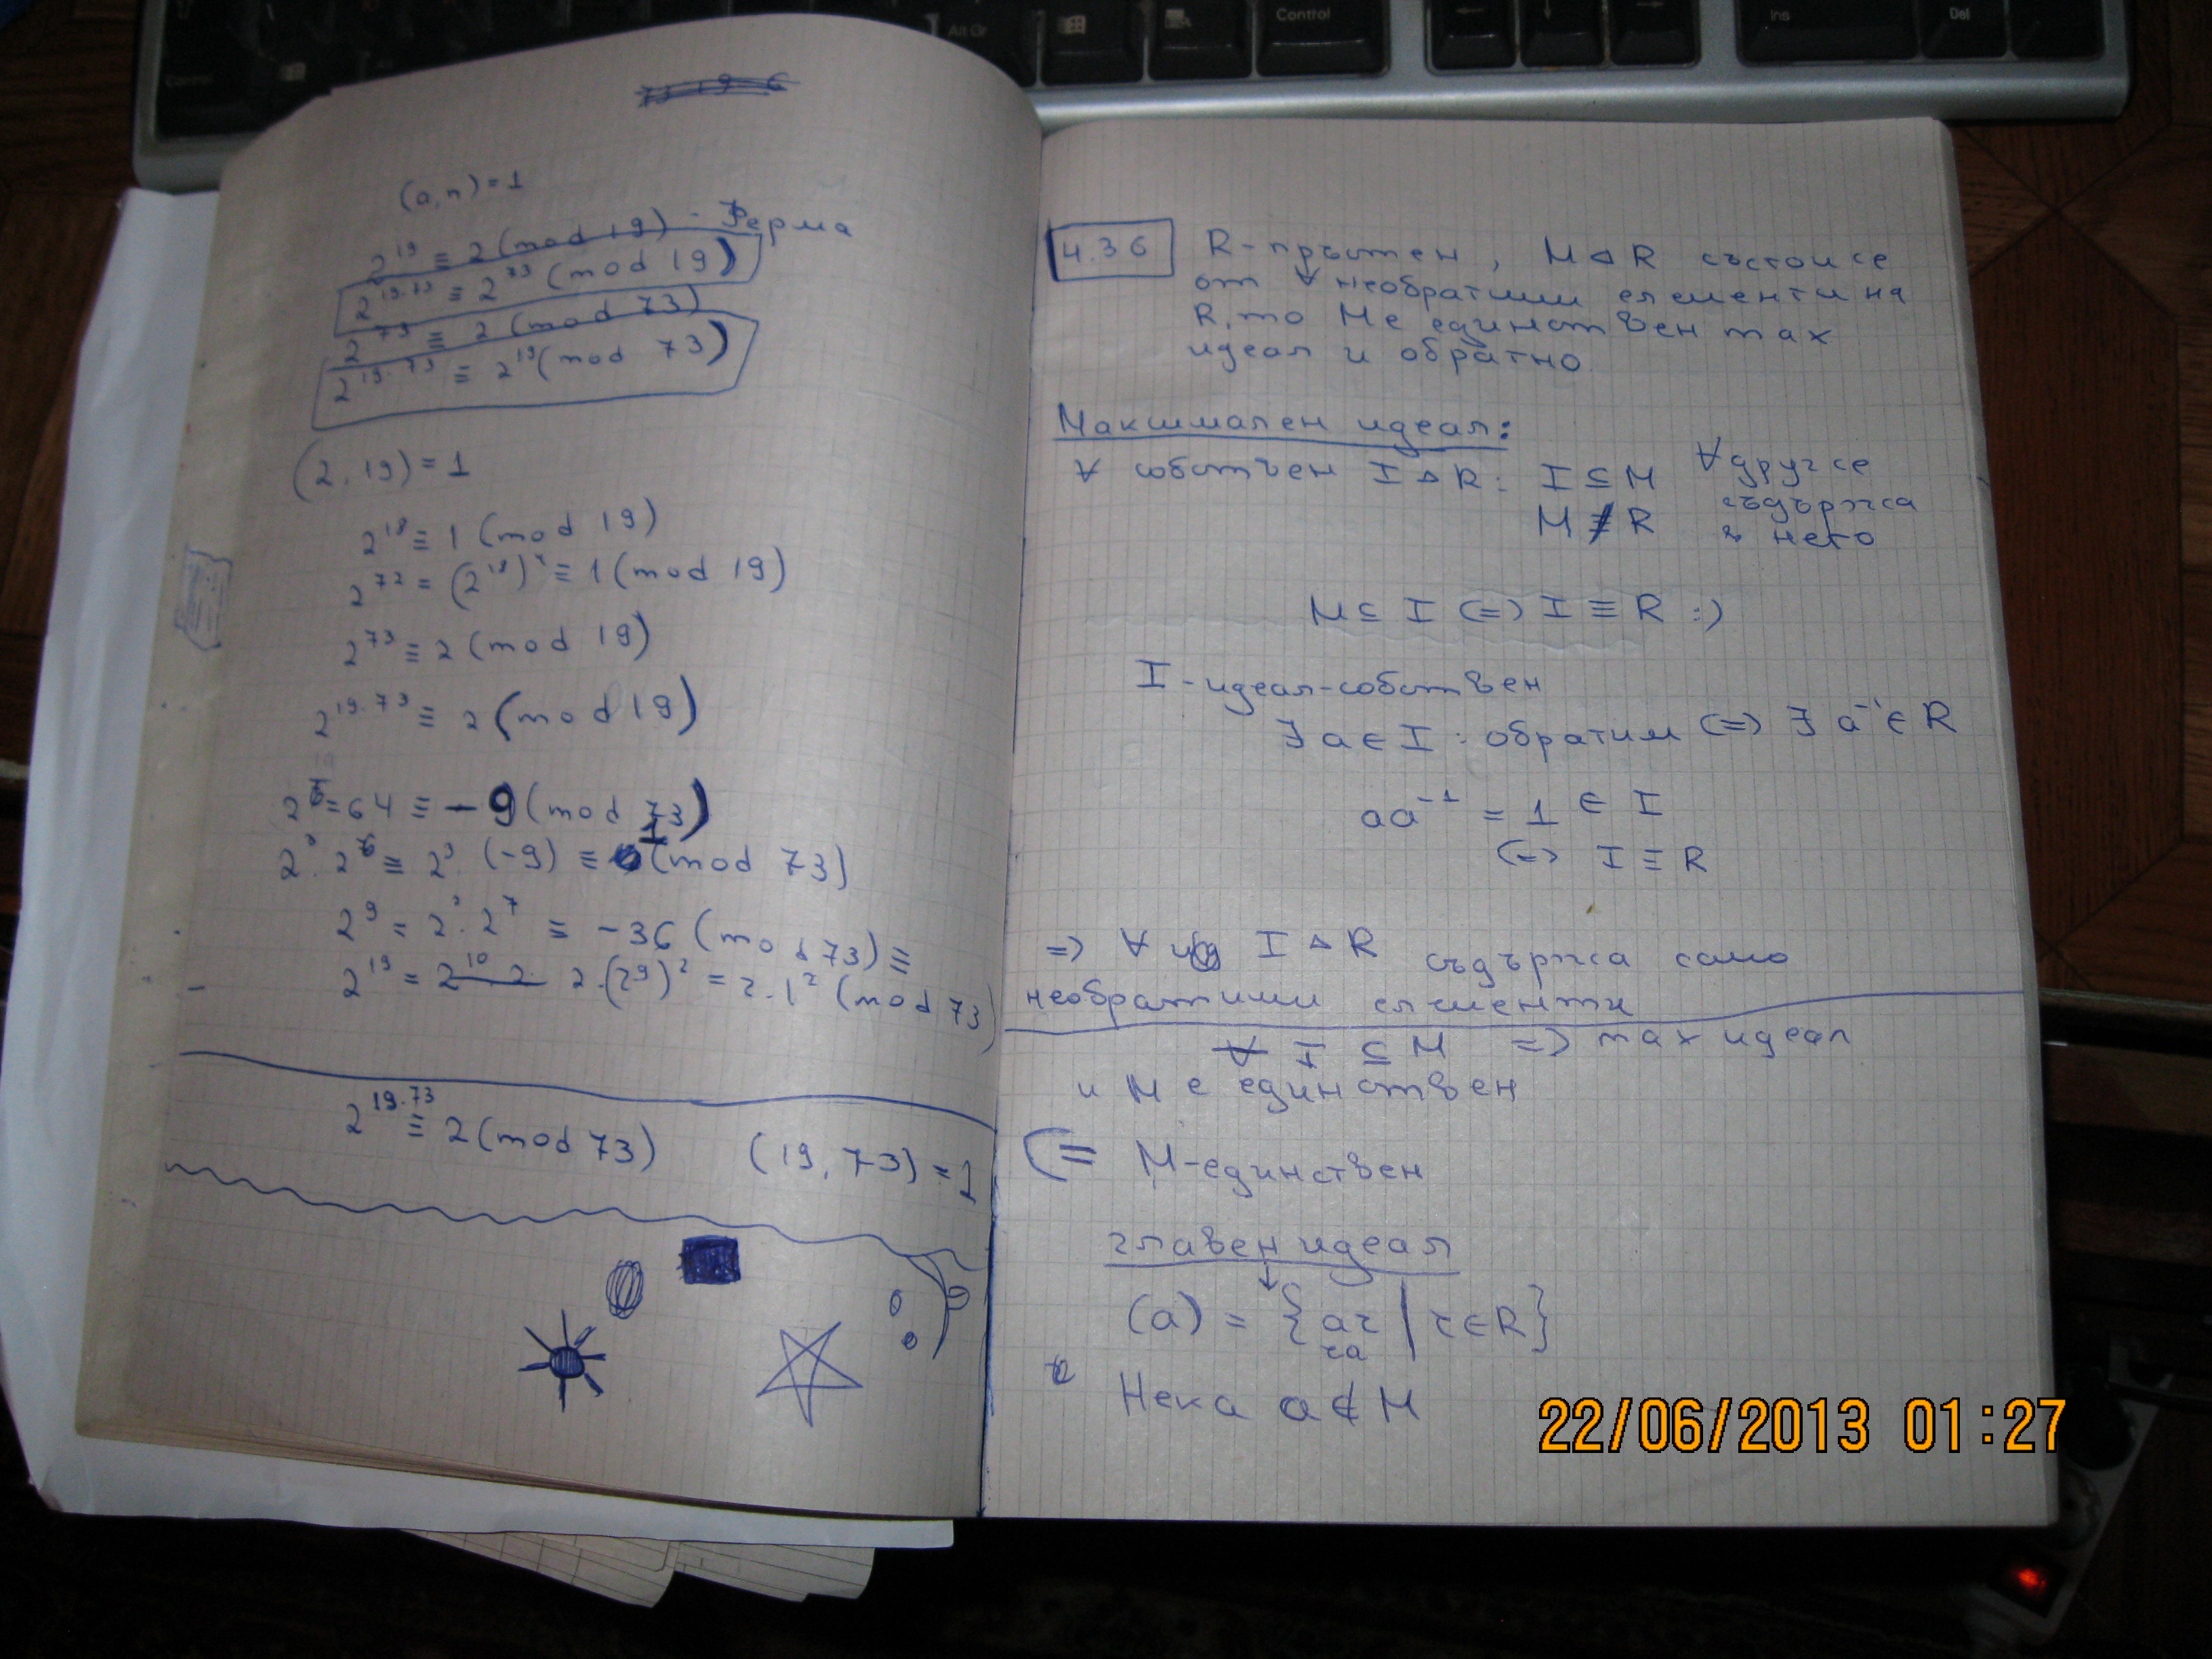 (a,n)=1
2^19 ≡ 2 (mod 19) - Ферма
2^19.73 ≡ 2^73 (mod 19)
2^73 ≡ 2 (mod 73)
2^19.73 ≡ 2^19 (mod 73)
(2,19)=1
2^18 ≡ 1 (mod 19)
2^72 = (2^18)^4 ≡ 1 (mod 19)
2^73 ≡ 2 (mod 19)
2^19.73 ≡ 2 (mod 19)
2^6 = 64 ≡ -9 (mod 73)
2^3.2^6 ≡ 2^3.(-9) ≡ 1 (mod 73)
2^9 = 2^2.2^7 ≡ -36 (mod 73) ≡
2^19 = 2^10 2 2.(2^9)^2 = 2.1^2 (mod 73)
2^19.73 ≡ 2 (mod 73) (19,73)=1
4.36 R-пръстен, M ⊲ R състои се
от ∀ необратими елементи на
R, то M е единствен max
идеал и обратно
Максимален идеал:
∀ собствен I ⊲ R: I ⊆ M ∀ друг се
M ≢ R съдържа
в него
M ⊆ I <=> I ≡ R :)
I-идеал-собствен
∃ a ∈ I: обратим <=> ∃ a^-1 ∈ R
aa^-1 = 1 ∈ I
<=> I ≡ R
=> ∀ I ⊲ R съдържа само
необратими елементи
∀ I ⊆ M => max идеал
и M е единствен
<= M-единствен
главен идеал
↓
(a) = {ar | r∈R}
ra
Нека a ∉ M
22/06/2013 01:27
Control
Alt Gr
Control
Ins
Del